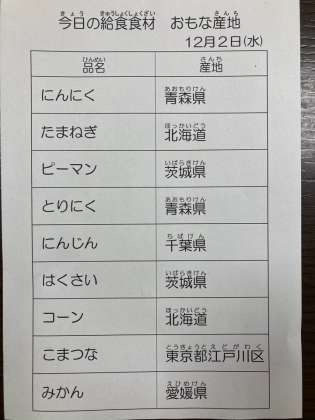 今日の給食食材　おもな産地
１２月２日(水)
品名 産地
にんにく 青森県
たまねぎ 北海道
ピーマン 茨城県
とりにく 青森県
にんじん 千葉県
はくさい 茨城県
コーン 北海道
こまつな 東京都江戸川区
みかん 愛媛県